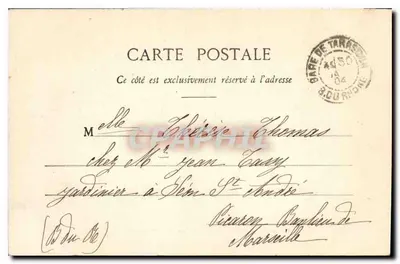 CARTE POSTALE
Ce côté est exclusivement réservé à l'adresse
GARE DE TARASCON
30
04
B. DU RHONE
Melle Thérèse Thomas
chez Mr jean Tassy
jardinier à St André
Banlieu de
(B du R) Marseille